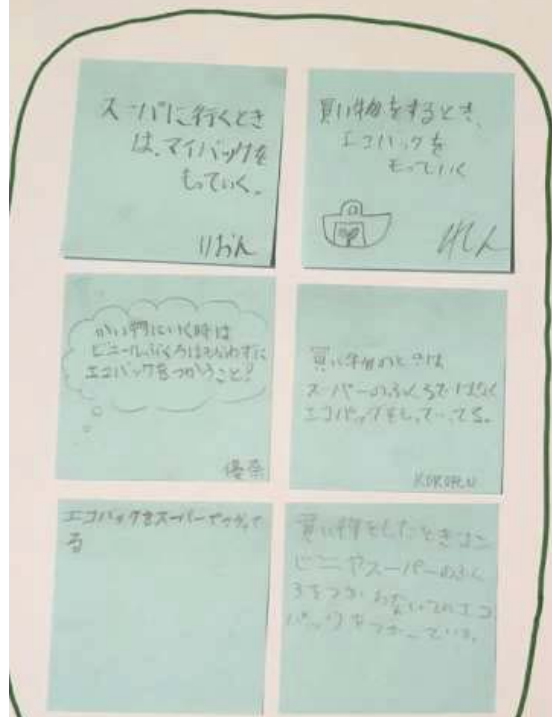 スーパに行くとき
は、マイバックを
もっていく。
りおん
買い物をするとき、
エコバックを
もっていく
れん
かい物にいく時は
ビニールぶくろはもらわずに
エコバックをつかうこと!
優奈
買い物のときは
スーパーのふくろではなく
エコバッグをもっていってる。
エコバックをスーパーでつかって
る
買い物をしたときコン
ビニやスーパーのふく
ろをつかわないでエコ
バックをつかっている。